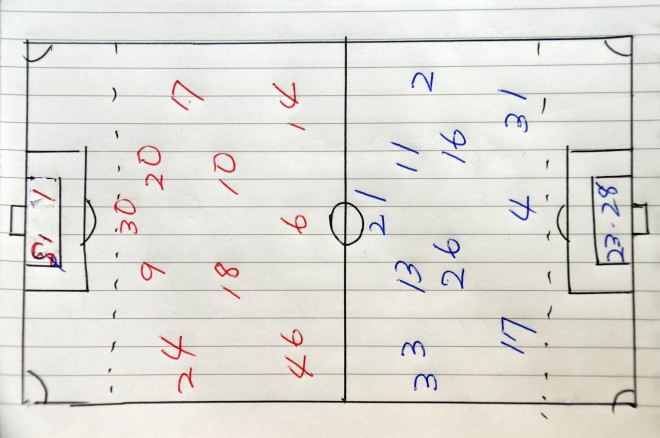 1
30
9 20
24 17
18 10
46 6 14
21
33 13 11 2
26 16
17 4 31
23·28